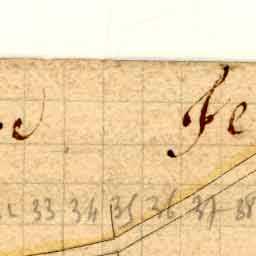 e Fe
33 34 35 36 37 38